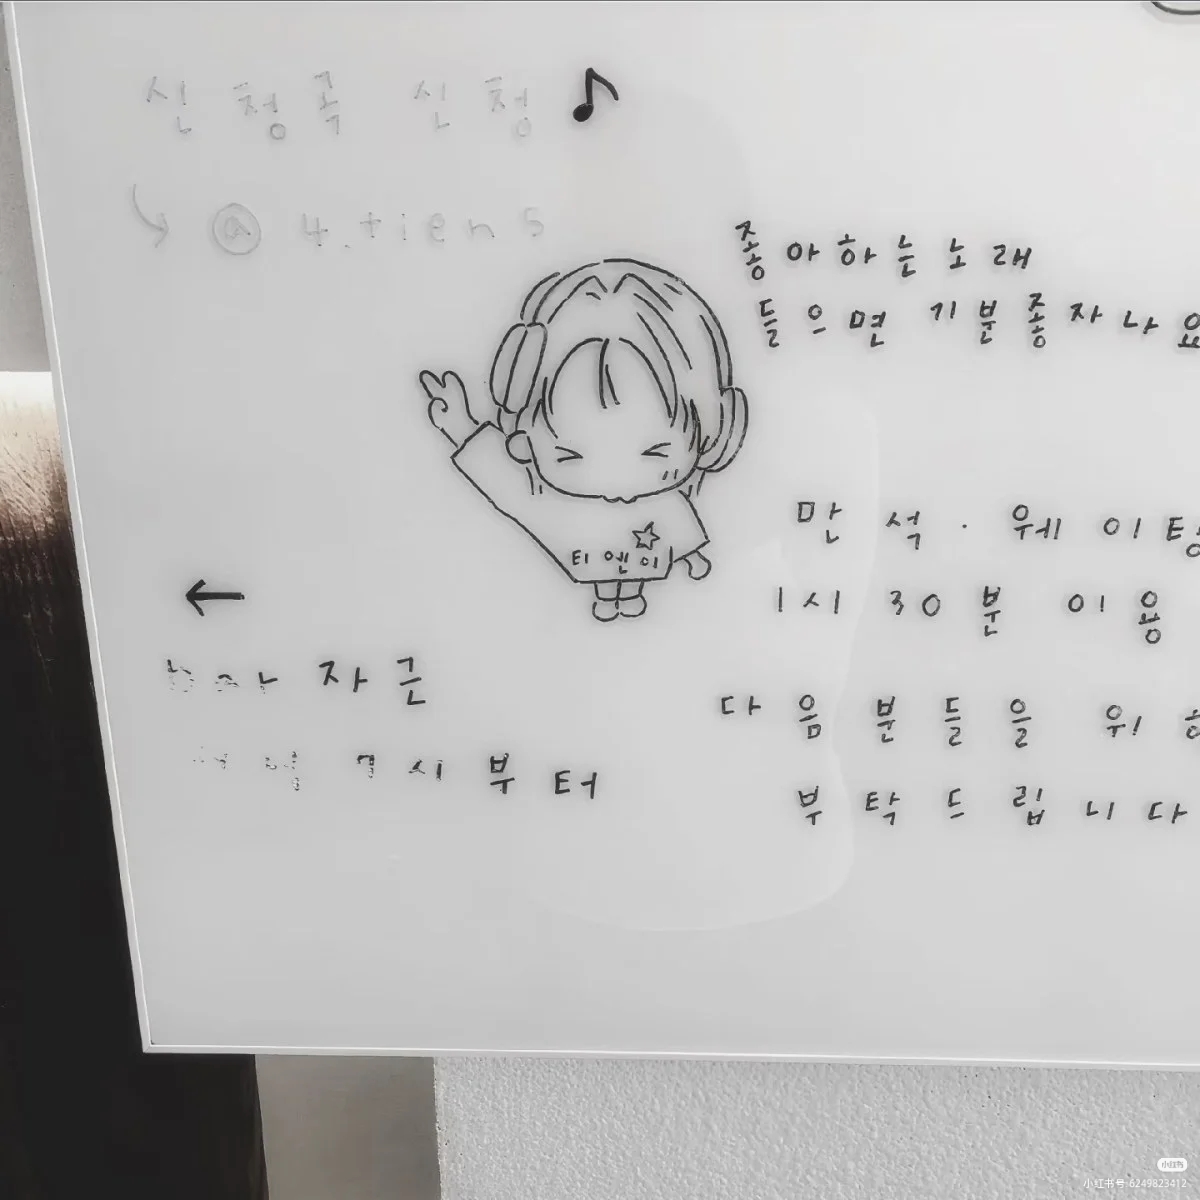 신청곡 신청 ♪
↳ @ 4.tien5
좋아하는 노래
들으면 기분 좋자나요
티엔이
만석 · 웨이팅
1시 30분 이용
다음 분들을 위
부탁드립니다
←
bar 자근
7시부터
小红书
小红书号:6249823412